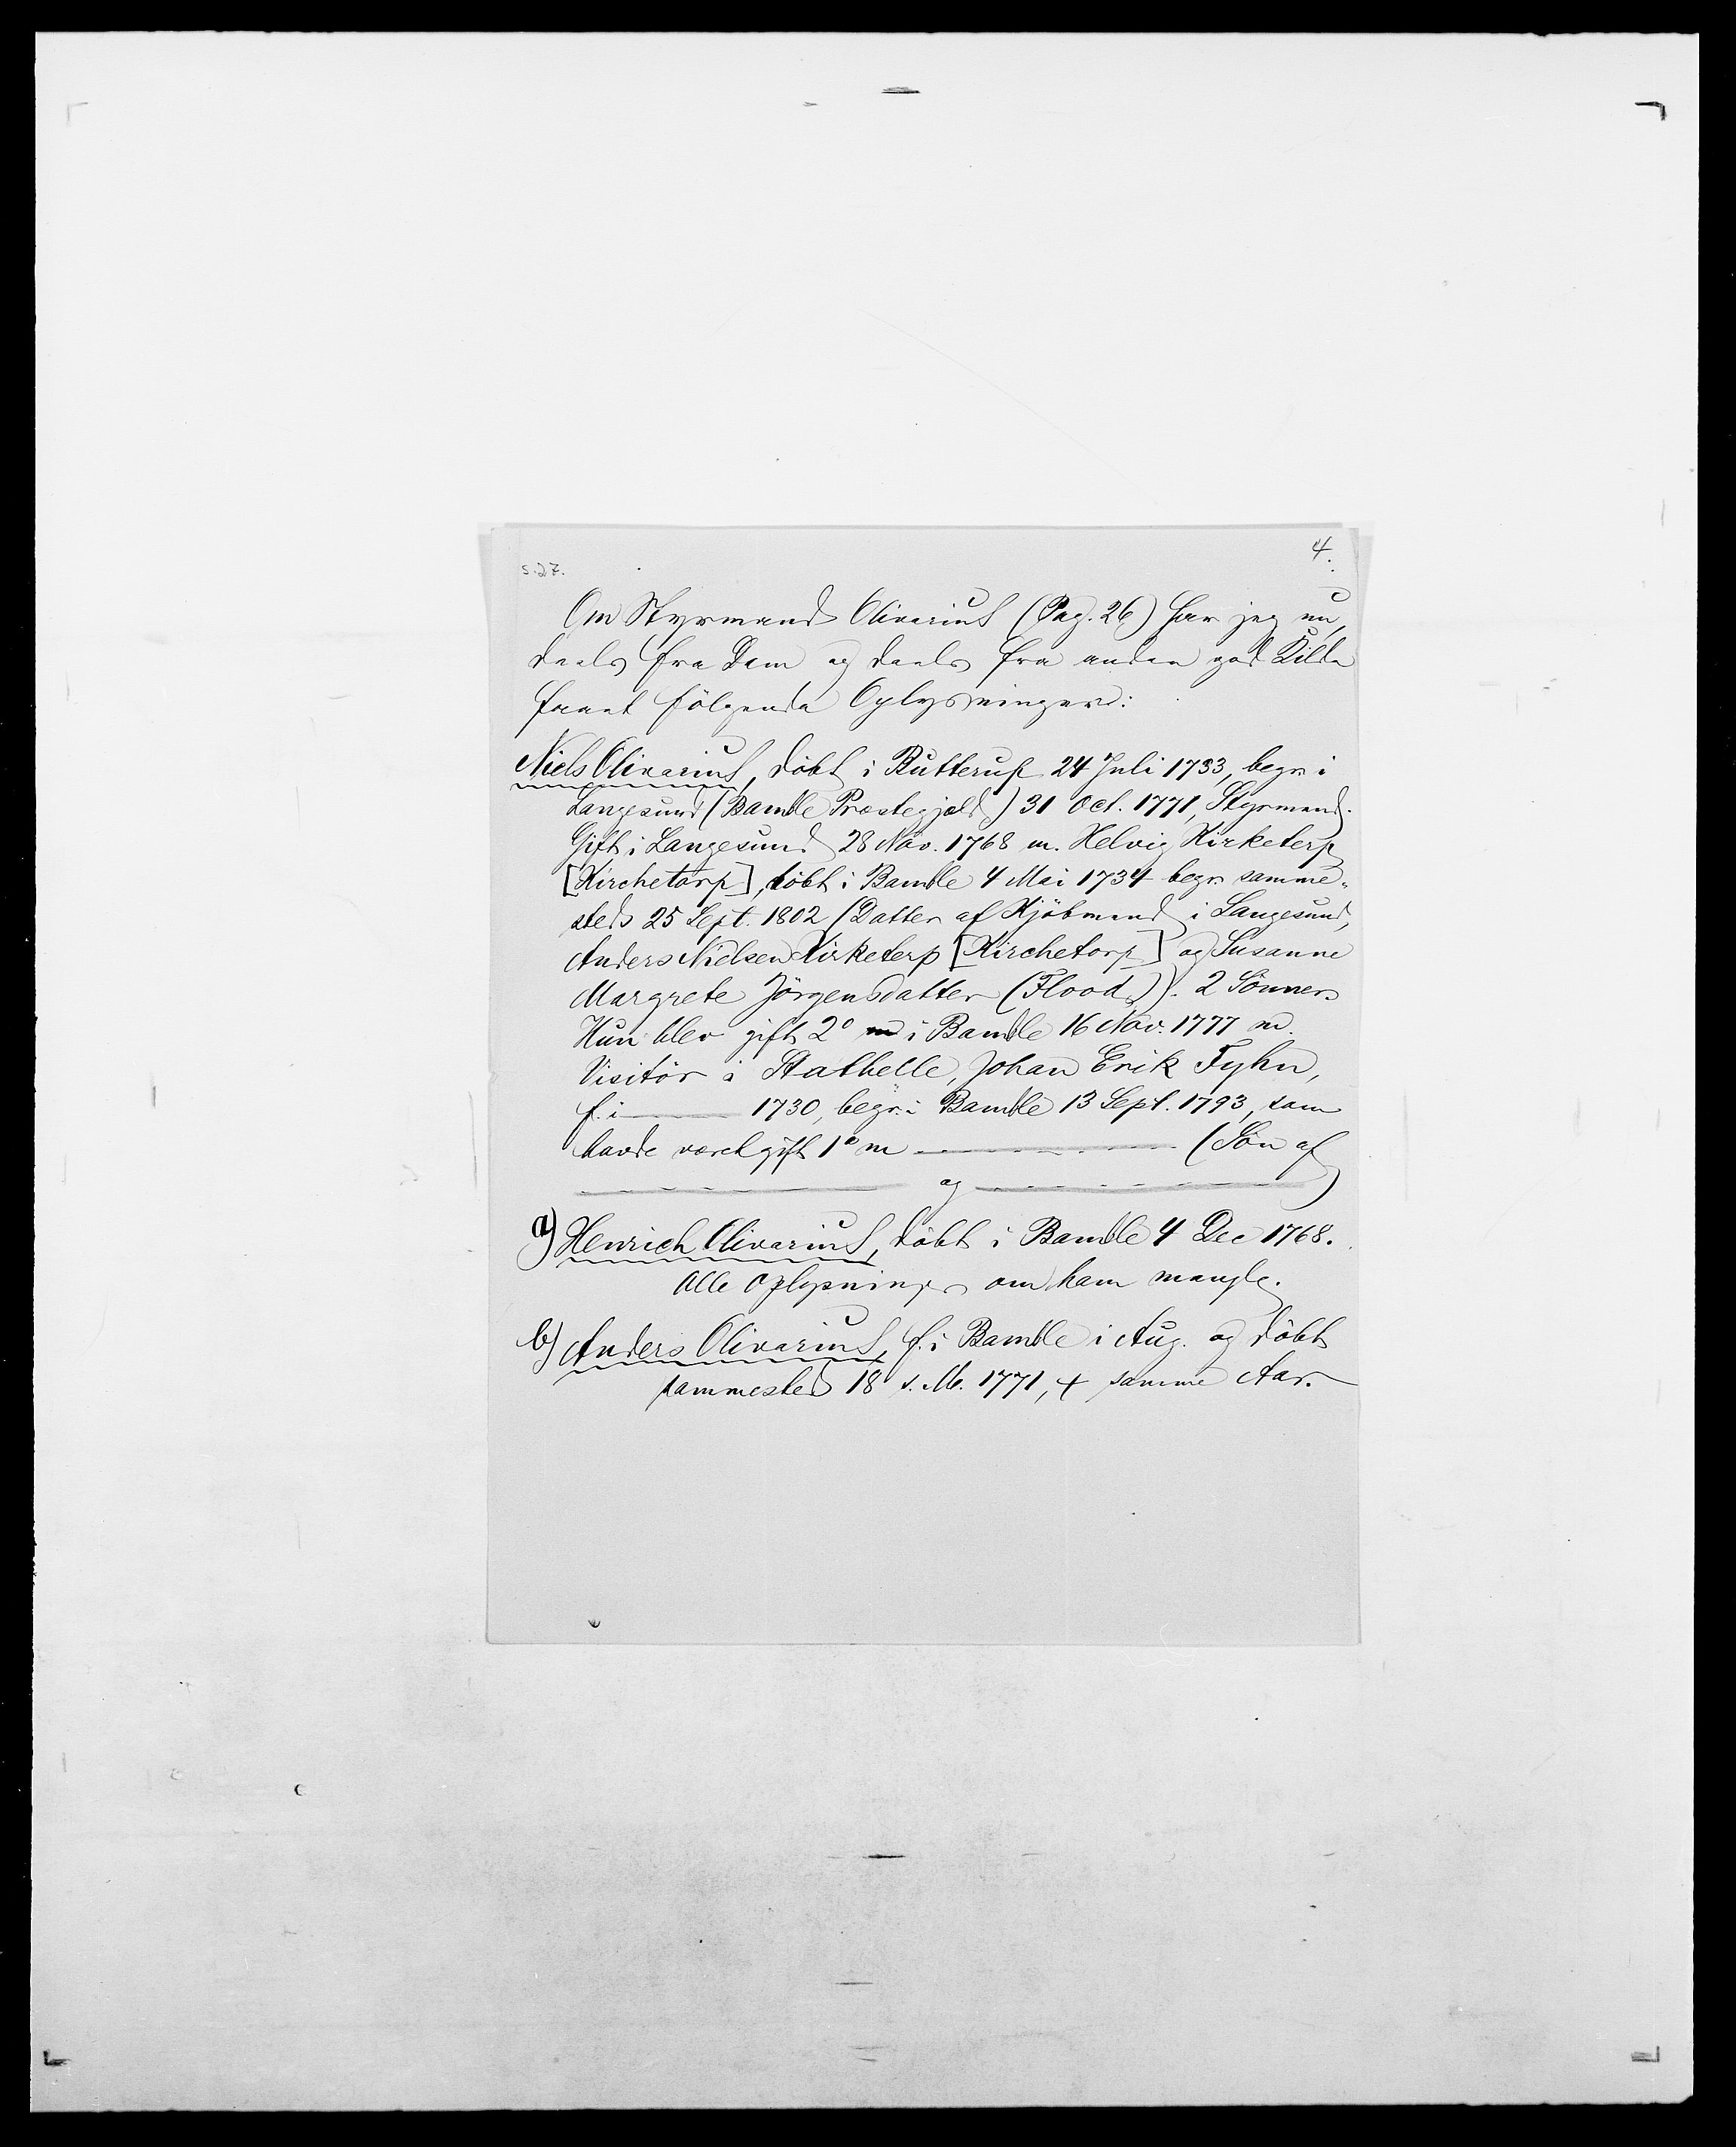 4.
s.27.
Om Styrmand Olivarius (Pag. 26) har jeg nu,
deels fra Dem og deels fra anden god Kilde
faaet følgende Oplysninger:
Niels Olivarius, döbt i Rutterup 24 Juli 1733, begr. i
Langesund (Bamble Præstegjeld) 31 Oct. 1771, Styrmand.
Gift i Langesund 28 Nov. 1768 m. Helvig Kirketerp
[Kirchetorp], döbt i Bamble 4 Mai 1734 begr. samme-
steds 25 Sept. 1802 (Datter af Kjöbmand i Langesund,
Anders Nielsen Kirketerp [Kirchetorp] og Susanne
Margrete Jörgensdatter (Flood)). 2 Sönner.
Hun blev gift 2° i Bamble 16 Nov. 1777 m.
Visitör i Stathelle, Johan Erik Tyhn,
f. i 1730, begr. i Bamble 13 Sept. 1793, som
havde været gift 1° m (Sön af
og )
a) Henrich Olivarius, döbt i Bamble 4 Dec 1768.
Alle Oplysninger om ham mangle.
b) Anders Olivarius, f. i Bamble i Aug. og döbt
sammested 18 s. M. 1771, + samme Aar.